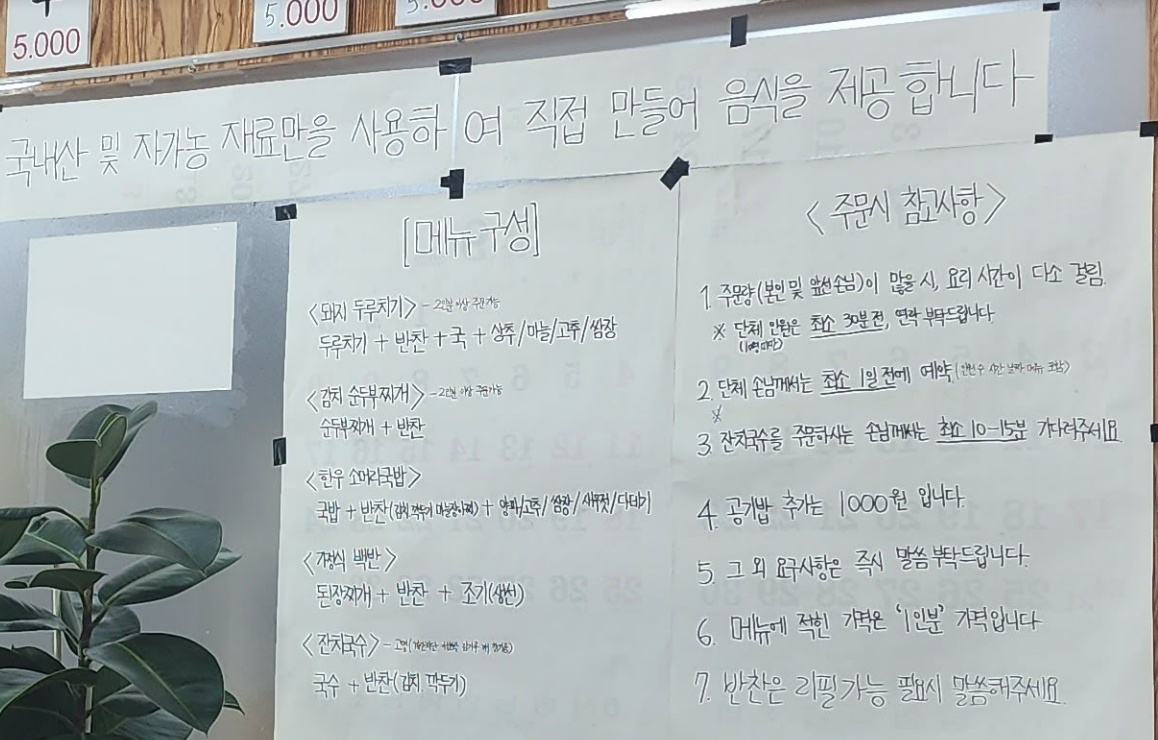 5.000
5.000
5.000
국내산 및 자가농 재료만을 사용하여 직접 만들어 음식을 제공합니다
[메뉴구성]
<돼지 두루치기> - 2인분 이상 주문가능
두루치기 + 반찬 + 국 + 상추/마늘/고추/쌈장
<김치 순두부찌개> - 2인분 이상 주문가능
순두부찌개 + 반찬
<한우 소머리국밥>
국밥 + 반찬(김치 깍두기) + 양파/고추/쌈장/새우젓/다데기
<가정식 백반>
된장찌개 + 반찬 + 조기(생선)
<잔치국수> - 고명
국수 + 반찬(김치 깍두기)
<주문시 참고사항>
1. 주문량(본인 및 앞선손님)이 많을 시, 요리 시간이 다소 걸림.
※ 단체 인원은 최소 30분전, 연락 부탁드립니다.
2. 단체 손님께서는 최소 1일 전에 예약(인원수 시간 날짜 메뉴 포함)
※
3. 잔치국수를 주문하시는 손님께서는 최소 10-15분 기다려주세요
4. 공기밥 추가는 1000원 입니다.
5. 그 외 요구사항은 즉시 말씀부탁드립니다.
6. 메뉴에 적힌 가격은 '1인분' 가격입니다
7. 반찬은 리필가능 필요시 말씀해주세요.